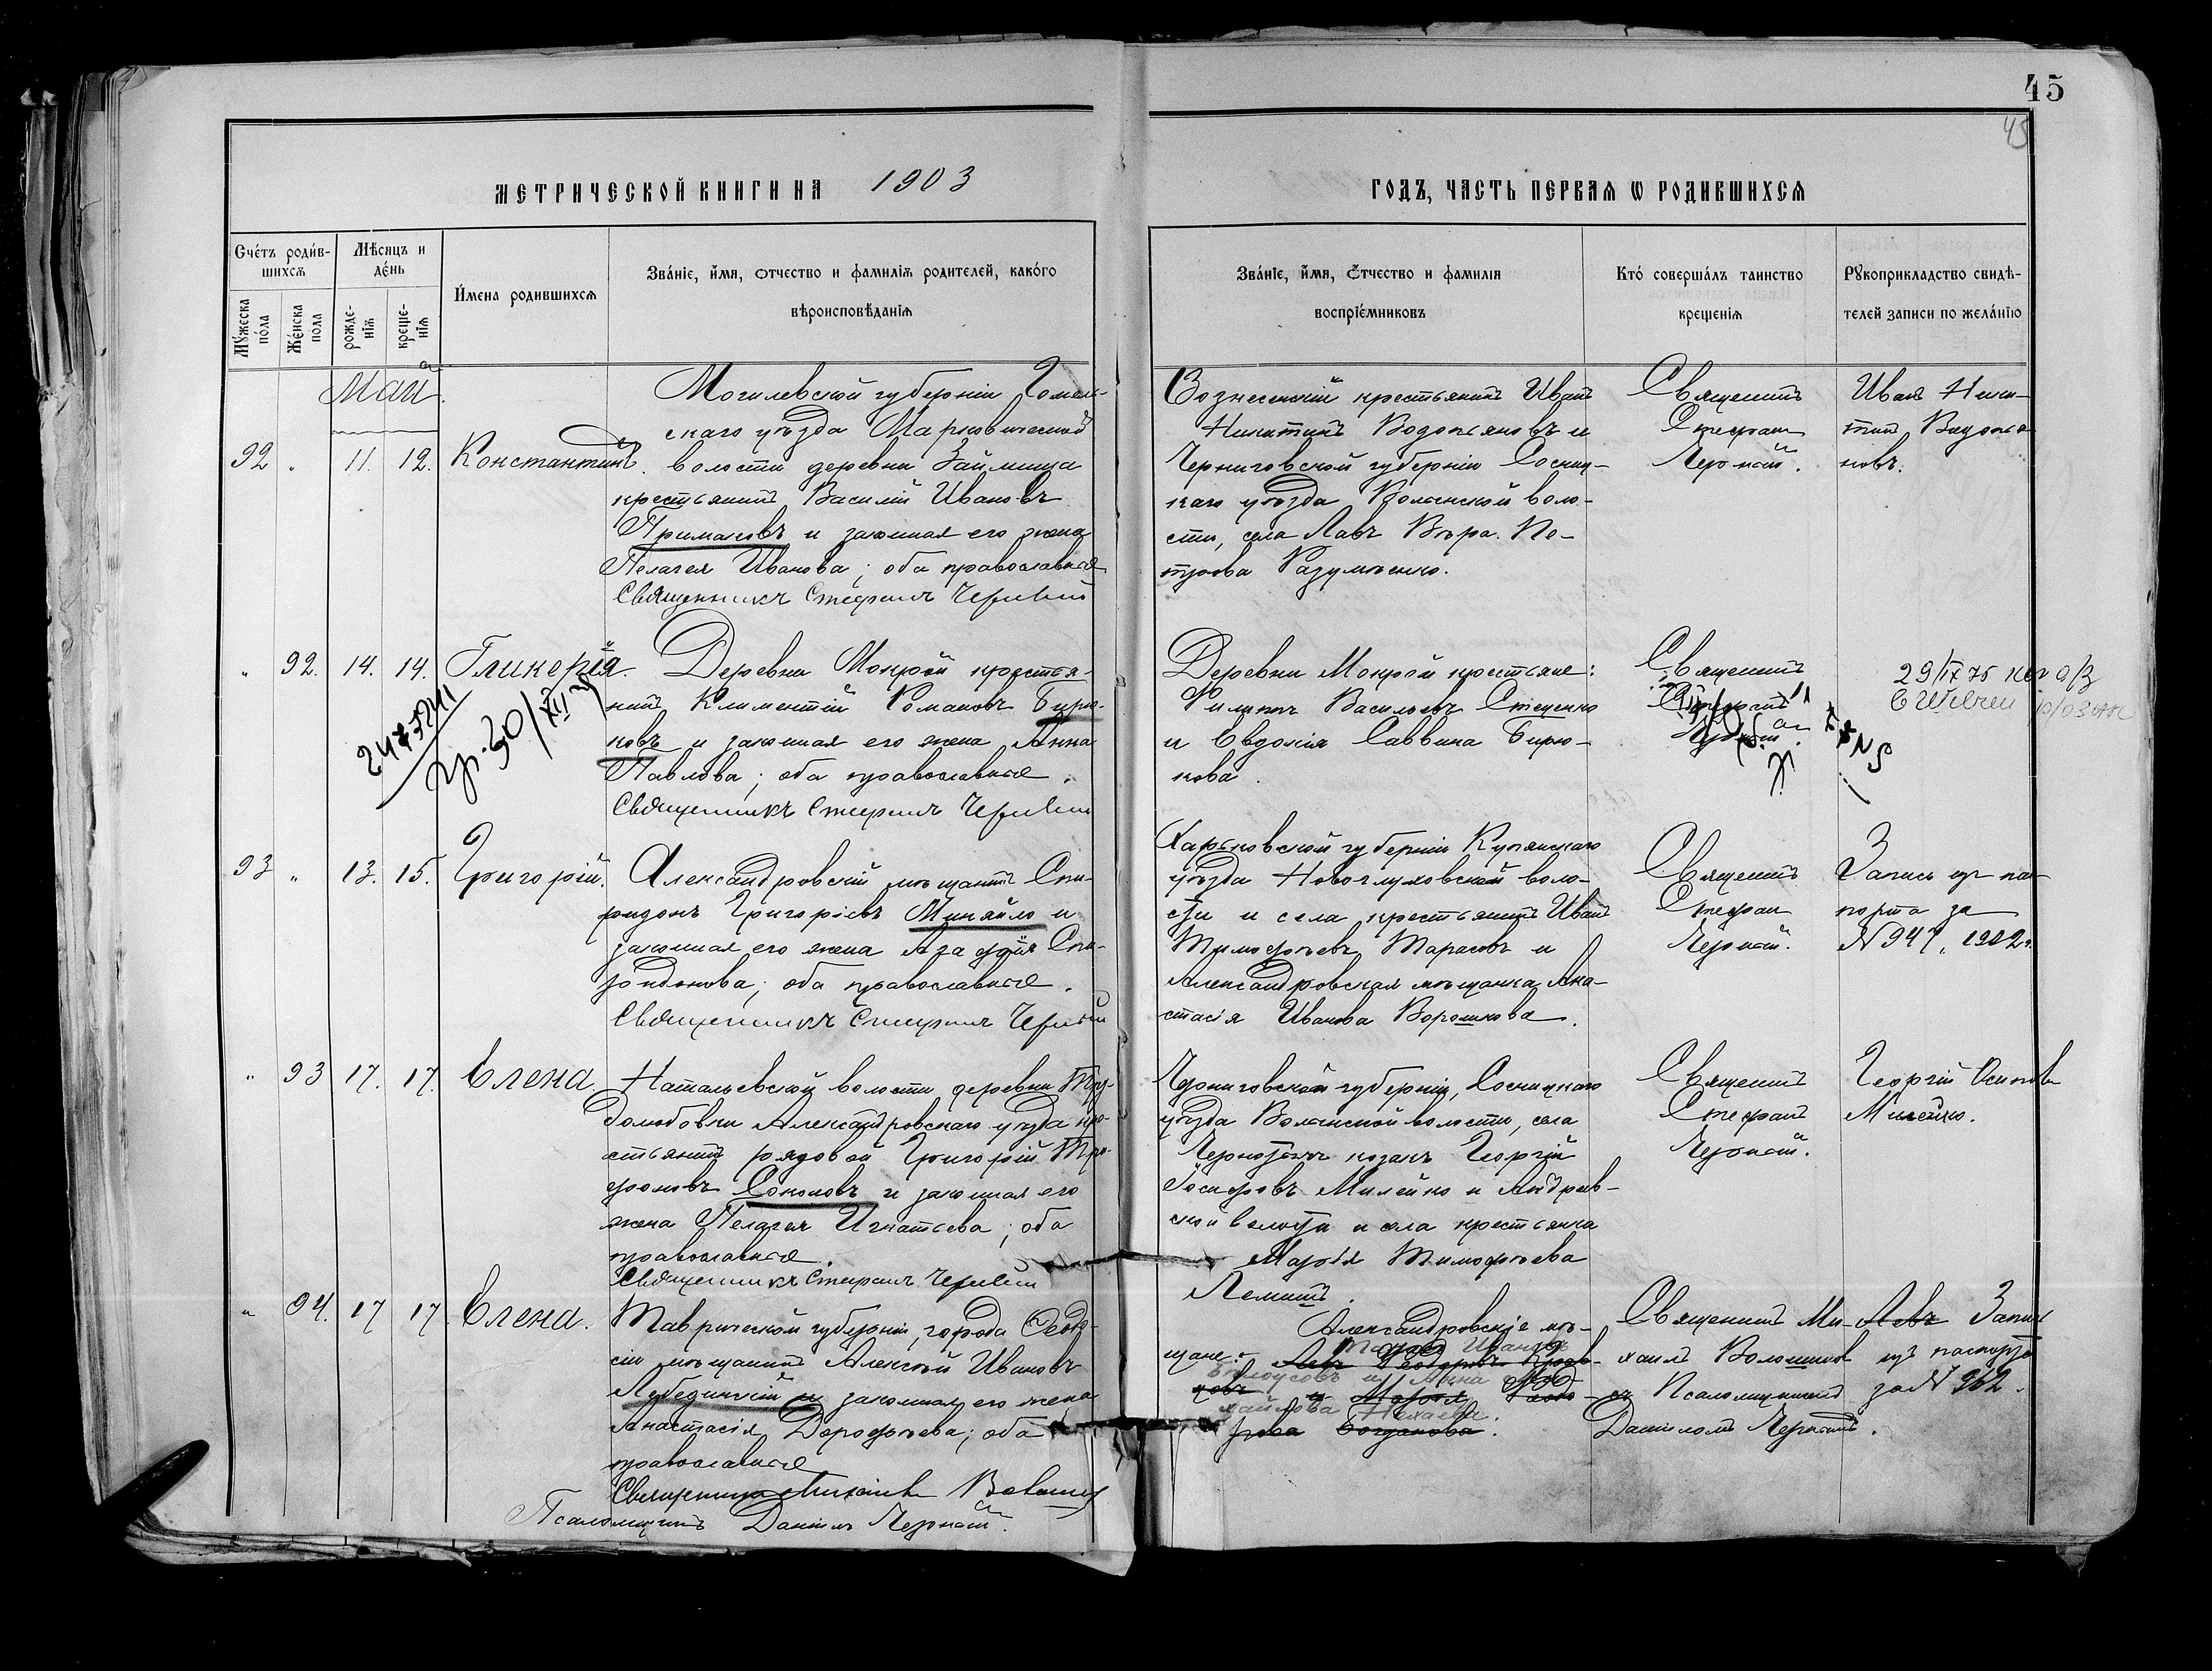 45
45
МЕТРИЧЕСКОЙ КНИГИ НА 1903
ГОДЪ, ЧАСТЬ ПЕРВАЯ Ѡ РОДИВШИХСѦ
Сче́тъ роди́в-
шихсѧ
Мѣсяцъ и
де́нь
Мꙋ́жеска
по́ла
Же́нска
пола
рожде-
нїѧ
креще-
нїѧ
И́мена родившихсѧ
Зва́нїе, и́мя, отчество и фамилїѧ родителей, како́го
вѣроисповѣданїѧ
Зва́нїе, и́мя, ѻтчество и фамилїя
воспрїе́мниковъ
Кто́ соверша́лъ таинство
крещенїѧ
Рꙋкоприкладство свидѣ-
телей записи по жела́нїю
Май
92 " 11. 12. Константинъ.
Могилевской губерніи Гомель-
скаго уѣзда Марковической
волости деревни Займища
крестьянинъ Василій Ивановъ
Примаковъ и законная его жена
Пелагея Иванова; оба православные
Священникъ Стефанъ Черный
Вознесенскій крестьянинъ Иванъ
Никитинъ Водопьяновъ и
Черниговской губерніи Сосниц-
каго уѣзда Волынской воло-
сти, села Лавъ Вѣра Пе-
трова Разумѣенко.
Священникъ
Стефан
Черный.
Иванъ Ники-
тинъ Водопья
новъ.
" 92. 14. 14. Гликерія.
2473741
гр. 30/XII
Деревни Мокрой крестья-
нинъ Климентій Романовъ Бирю-
ковъ и законная его жена Анна
Павлова; оба православные.
Священникъ Стефанъ Черный
Деревни Мокрой крестьяне:
Филиппъ Васильевъ Стеценко
и Евдокія Саввина Бирю-
кова.
Священникъ
Стефанъ
Черный.
29/IX 75
93 " 13. 15. Григорій.
Александровскій мѣщанинъ Спи-
ридонъ Григоріевъ Миняйло и
законная его жена Агафія Спи-
ридонова; оба православные.
Священникъ Стефанъ Черный
Харьковской губерніи Купянскаго
уѣзда Новоглуховской воло-
сти и села крестьянинъ Иванъ
Тимофѣевъ Тарасовъ и
Александровская мѣщанка Ана-
стасія Иванова Ворошкова.
Священникъ
Стефан
Черный.
Запись из пас
порта за
№ 947, 1902 г.
" 93 17. 17. Елена
Натальевской волости деревни Тру-
долюбовки Александровскаго уѣзда кре-
стьянинъ рядовой Григорій Тро-
фимовъ Соколовъ и законная его
жена Пелагея Игнатьева; оба
православные.
Священникъ Стефанъ Черный
Черниговской губерніи, Сосницкаго
уѣзда Волынской волости, села
козакъ Георгій
Іосифовъ Милейко и Андреев-
ской волости и села крестьянка
Марія Тимофѣева
Священникъ
Стефанъ
Черный.
Георгій Осиповъ
Милейко.
" 94. 17 17. Елена.
Таврической губерніи, города Ѳеодо-
сіи мѣщанинъ Алексѣй Ивановъ
Лебединскій и законная его жена
Анастасія Дорофѣева; оба
православные
Священникъ Михаилъ Волошинъ
Псаломщикъ Даніилъ Черный.
Александровскіе мѣ-
щане:
Ивановъ
Бѣлоусовъ и Анна Ми-
хайлова Нехаева.
Марія
Богданова.
Священникъ Ми-
хаилъ Волошинов
съ Псаломщикомъ
Даніиломъ Чернымъ.
Запись
изъ паспорта
за № 962.